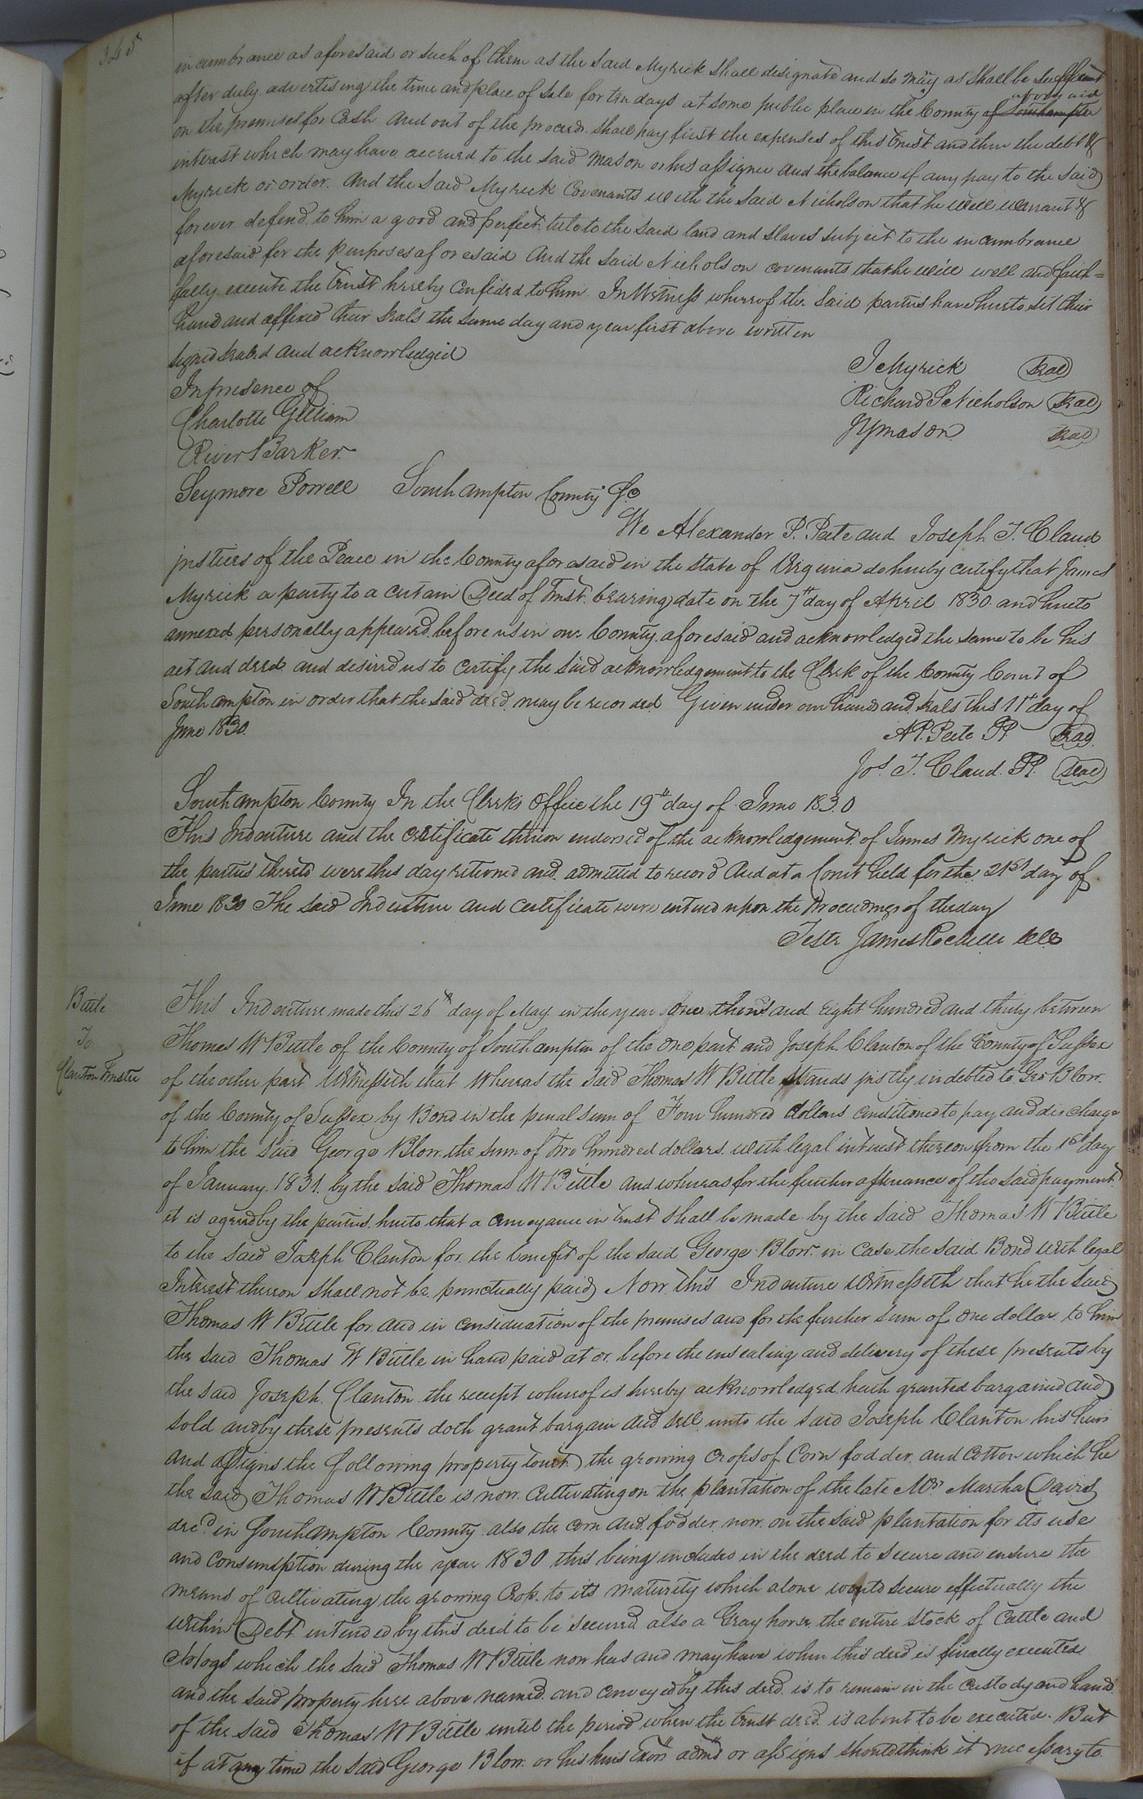 345
incumbrance as aforesaid or such of them as the said Myrick shall designate and so may as shall be sufficient
after duly advertising the time and place of sale for ten days at some public place in the County of Southampton aforesaid
on the premises for Cash and out of the proceed. shall pay first the expenses of this trust and then the debt &
interest which may have accrued to the said Mason or his assignee and the balance if any pay to the said
Myrick or order. And the said Myrick Covenants with the said Nicholson that he will warrant &
forever defend to him a good and perfect title to the said land and slaves subject to the incumbrance
aforesaid for the purposes aforesaid And the said Nicholson covenants that he will well and faith=
fully execute the trust hereby confided to him In Witness whereof the said parties have hereto set their
hand and affixed their seals the same day and year first above written
Signed sealed and acknowledged
In presence of
J Myrick Seal
Charlotte Gilliam
Richard S Nicholson Seal
River Barker
J Y Mason Seal
Seymore Powell Southampton County Sc
We Alexander P. Peete and Joseph T. Claud
justices of the Peace in the County aforesaid in the State of Virginia do hereby certify that James
Myrick a party to a certain Deed of trust bearing date on the 7th day of April 1830 and hereto
annexed personally appeared before us in our County aforesaid and acknowledged the same to be his
act and deed and desired us to certify the said acknowledgement to the Clerk of the County Court of
Southampton in order that the said deed may be recorded Given under our hands and seals this 11th day of
June 1830.
A P. Peete JP Seal
Jos. T. Claud. JP. Seal
Southampton County In the Clerks Office the 19th day of June 1830
This Indenture and the certificate thereon endorsed of the acknowledgement of James Myrick one of
the parties thereto were this day returned and admitted to record And at a Court held for the 21st day of
June 1830 The said Indenture and certificate were entered upon the Proceedings of the day
Teste James Rochelle
Bittle
To
Clanton Trustee
This Indenture made this 26th day of May in the year One thousand eight hundred and thirty between
Thomas W Bittle of the County of Southampton of the one part and Joseph Clanton of the County of Sussex
of the other part Witnesseth that Whereas the said Thomas W Bittle stands justly indebted to Geo Blow.
of the County of Sussex by Bond in the penal sum of Four hundred dollars conditioned to pay and discharge
to him the said George Blow. the sum of two hundred dollars with legal interest thereon from the 1st day
of January. 1831. by the said Thomas W Bittle and whereas for the further assurance of the said payment
it is agreed by the parties hereto that a conveyance in trust shall be made by the said Thomas W Bittle
to the said Joseph Clanton for the benefit of the said George Blow in case the said Bond with legal
Interest thereon shall not be punctually paid Now this Indenture Witnesseth that he the said
Thomas W Bittle for and in consideration of the premises and for the further sum of one dollar to him
the said Thomas W Bittle in hand paid at or before the ensealing and delivery of these presents by
the said Joseph Clanton the receipt whereof is hereby acknowledged hath granted bargained and
sold and by these presents doth grant bargain and sell unto the said Joseph Clanton his heirs
and assigns the following property towit the growing crops of Corn fodder and cotton which he
the said Thomas W Bittle is now cultivating on the plantation of the late Mrs Martha Davis
decd. in Southampton County also the corn and fodder now on the said plantation for its use
and consumption during the year 1830 this being included in the deed to secure and ensure the
means of cultivating the growing crop. to its maturity which alone would secure effectually the
within Debt intended by this deed to be secured also a Gray horse the entire stock of cattle and
Hogs which the said Thomas W Bittle now has and may have when this deed is finally executed
and the said property here above named and conveyed by this deed is to remain in the custody and hands
of the said Thomas W Bittle until the period when the trust deed is about to be executed. But
if at any time the said George Blow or his heirs Exors admrs or assigns should think it necessary to